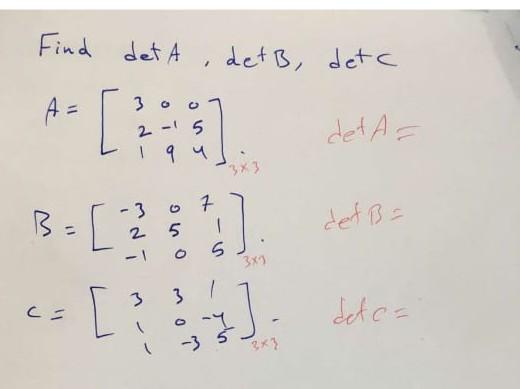 Find det A , det B, det C
A = [ 3 0 0
2 -1 5
1 9 4 ] . 3×3
det A =
B = [ -3 0 7
2 5 1
-1 0 5 ] . 3×3
det B =
C = [ 3 3 1
1 0 -4
1 -3 5 ] . 3×3
det C =